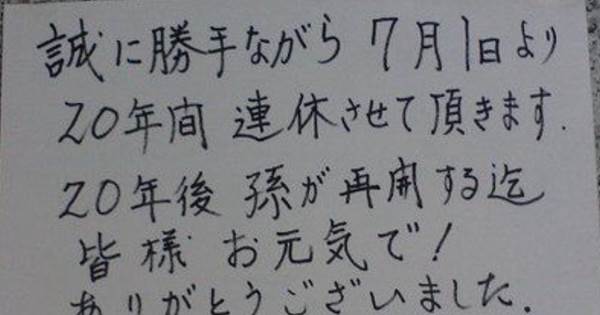 誠に勝手ながら 7月1日より
20年間 連休させて頂きます.
20年後 孫が再開する迄
皆様 お元気で!
ありがとうございました.